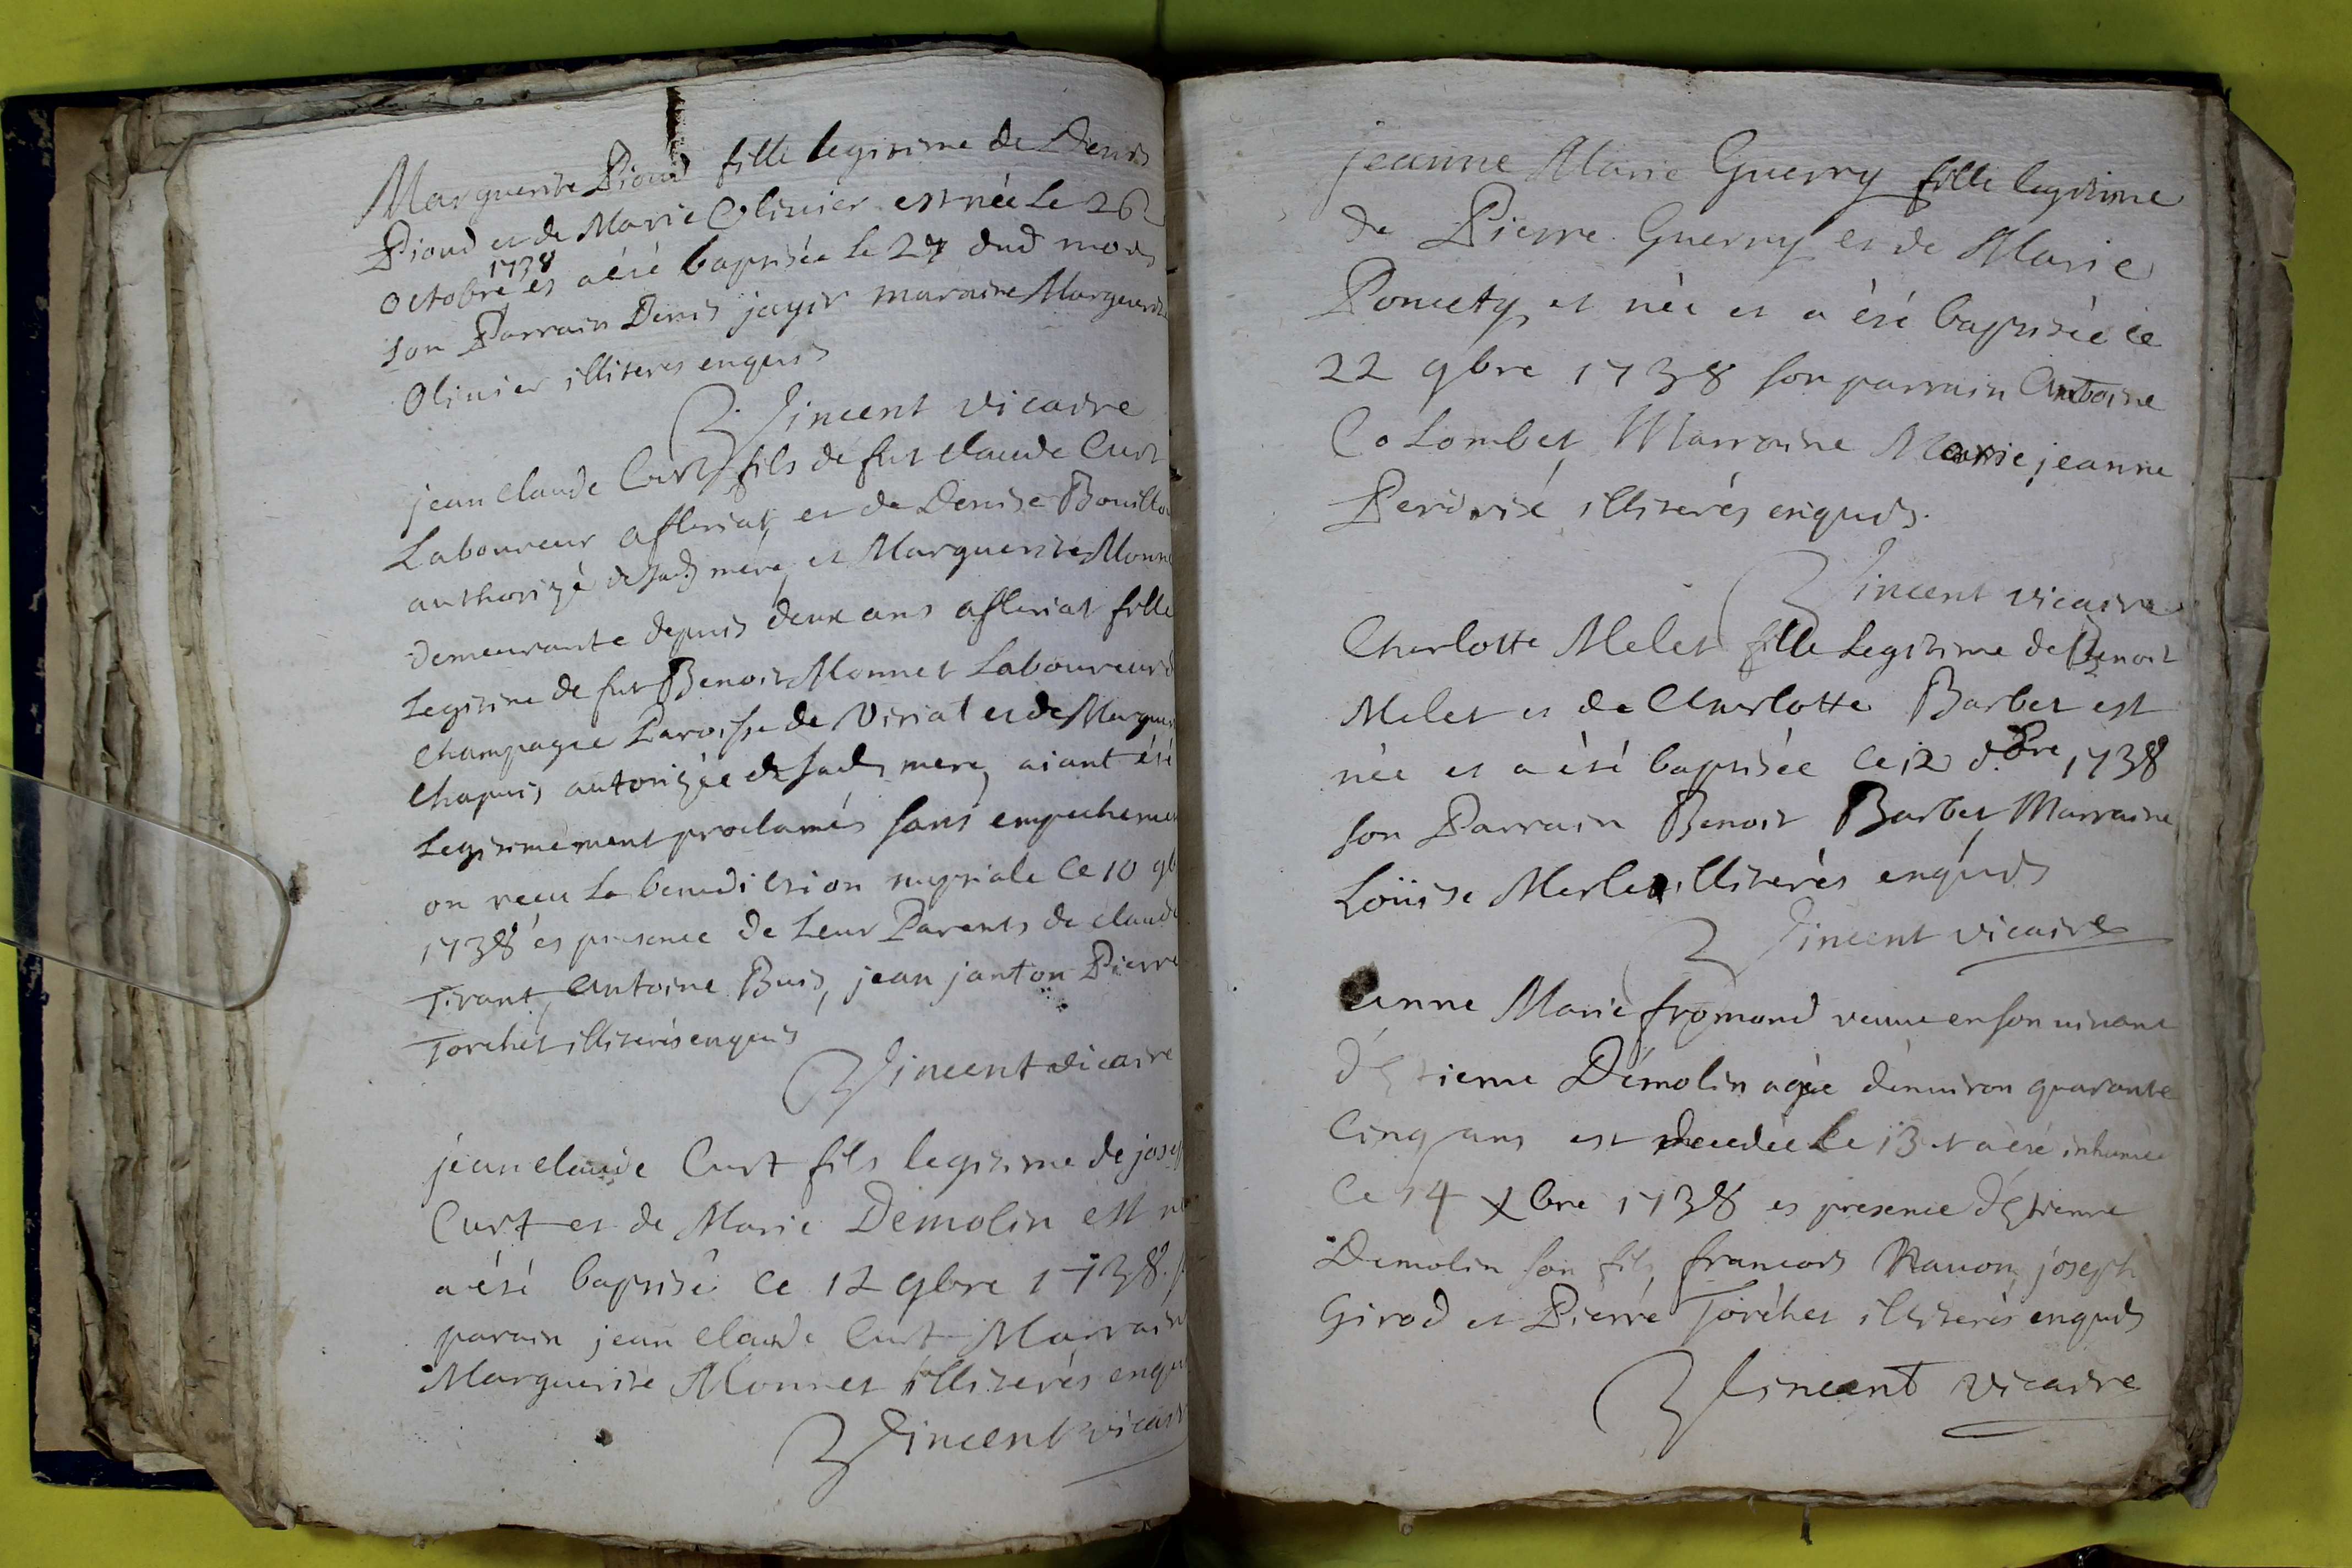 Marguerite Pioud fille legitime de Denis
Pioud et de Marie Olivier est née le 26
octobre 1738 et a été baptisée le 27 dud mois
son Parrain Denis jayr maraine Marguerite
Olivier illiteres enquis
Vincent vicaire
jean claude Curt fils de fut claude Curt
Laboureur afleriat et de Denise Bouillo
authorizé de sad mere, et Marguerite Monn
demeurante depuis deux ans afleriat fille
Legitime de fut Benoit Monnet Laboureur
Champagne Paroisse de Viriat et de Margue
Chapuis autorizée de sad mere, aiant été
Legitimement proclamés sans empecheme
on recu la benediction nuptiale le 10 9b
1738 es presence de Leur Parents de claude
Tirant, Antoine Buis, jean janton Pierre
Torchet illiterés enquis
Vincent vicaire
jean claude Curt fils legitime de josep
Curt et de Marie Demolin est né
a été baptisé le 12 9bre 1738.
parain jean claude Curt Marrain
Marguerite Monnet illiterés enqu
Vincent vicair
jeanne Marie Guerry fille legitime
de Pierre Guerry et de Marie
Poncety et née et a été baptisée le
22 9bre 1738 son parrain Antoine
Colombet Marraine Marie jeanne
illiterés enquis.
Vincent vicaire
Charlotte Melet fille Legitime de Benoit
Melet et de Charlotte Barbet est
née et a été baptisée le 12 d.bre 1738
son Parrain Benoit Barbet Marraine
Loüise Merle illiterés enquis
Vincent vicaire
anne Marie fromond veuve en son vivant
d'Etienne Démolin agée d'environ quarante
Cinq ans est decedée le 13 et a été inhumée
le 14 xbre 1738 es presence d'Etienne
Demolin son fils, francois joseph
Girod et Pierre Torchet illiterés enquis
Vincent vicaire